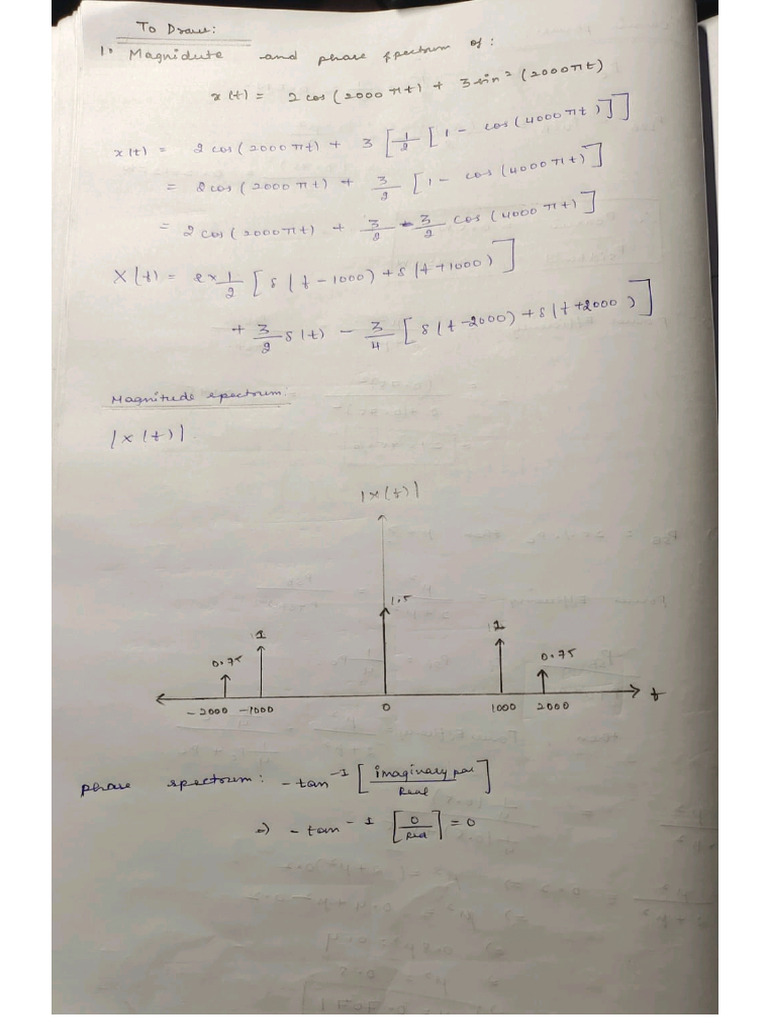 To Draw:
1. Magnidute and phase spectrum of:
x(t) = 2cos(2000πt) + 3sin²(2000πt)
x(t) = 2cos(2000πt) + 3[1/2[1 - cos(4000πt)]]
= 2cos(2000πt) + 3/2[1 - cos(4000πt)]
= 2cos(2000πt) + 3/2 - 3/2 cos(4000πt)]
X(f) = 2×1/2[δ(f-1000)+δ(f+1000)]
+ 3/2 δ(f) - 3/4[δ(f-2000)+δ(f+2000)]
Magnitude spectrum:
|X(f)|
|X(f)|
1.5
1 1
0.75 0.75
-2000 -1000 0 1000 2000 f
phase spectrum: -tan⁻¹[imaginary par/Real]
⇒ -tan⁻¹[0/Real] = 0